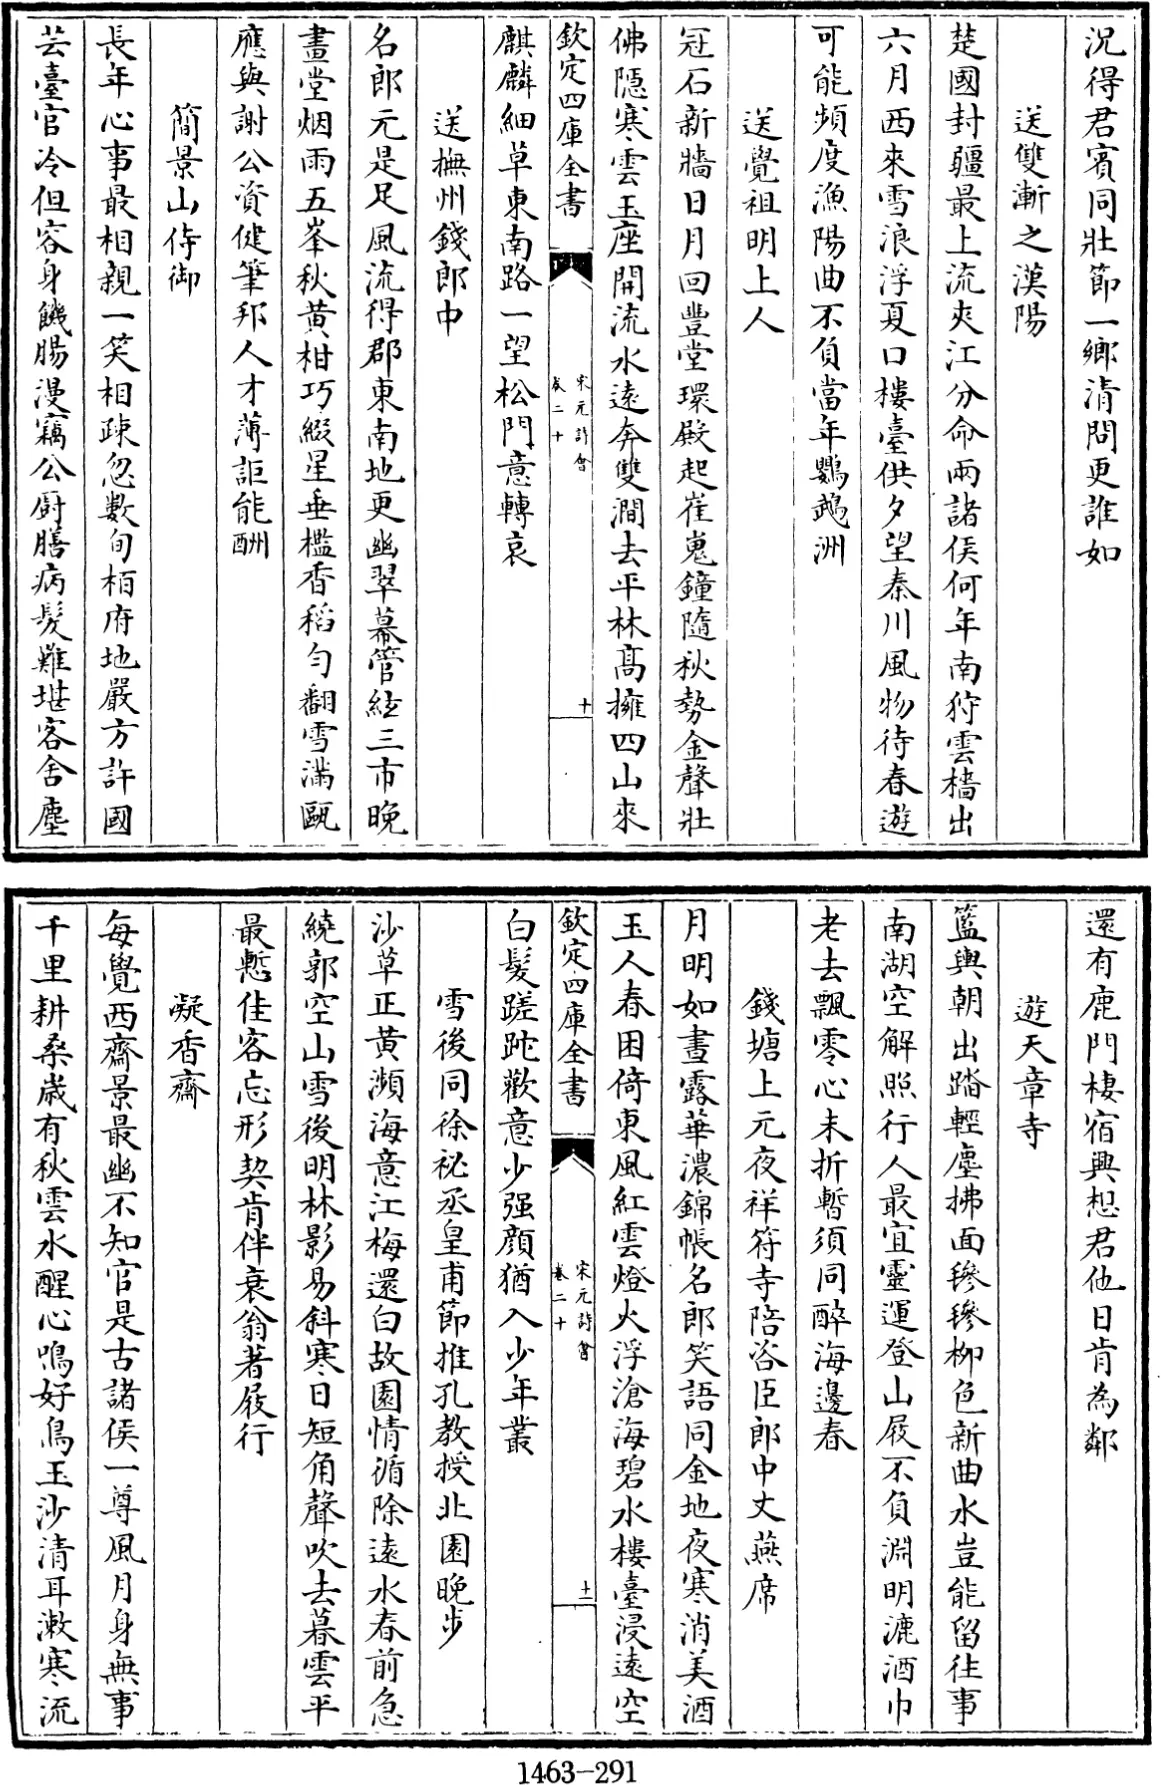 況得君賓同壯節一鄉清問更誰如
送雙漸之漢陽
楚國封疆最上流夾江分命兩諸侯何年南狩雲檣出
六月西來雪浪浮夏口樓臺供夕望秦川風物待春遊
可能頻度漁陽曲不負當年鸚鵡洲
送覺祖明上人
冠石新牆日月回豐堂環殿起崔嵬鐘隨秋勢金聲壯
佛隱寒雲玉座開流水遠奔雙澗去平林髙擁四山來
欽定四庫全書
宋元詩會
卷二十
十
麒麟細草東南路一望松門意轉哀
送撫州錢郎中
名郎元是足風流得郡東南地更幽翠幕管絃三市晚
畫堂烟雨五峯秋黃柑巧綴星垂檻香稻勻翻雪滿甌
應與謝公資健筆邦人才薄詎能酬
簡景山侍御
長年心事最相親一笑相疎忽數旬栢府地嚴方許國
芸臺官冷但容身饑腸漫竊公厨膳病髮難堪客舍塵
還有鹿門棲宿興想君他日肯為鄰
遊天章寺
籃輿朝出踏輕塵拂面毿毿柳色新曲水豈能留往事
南湖空解照行人最宜靈運登山屐不負淵明漉酒巾
老去飄零心未折暫須同醉海邊春
錢塘上元夜祥符寺陪咨臣郎中丈燕席
月明如晝露華濃錦帳名郎笑語同金地夜寒消美酒
玉人春困倚東風紅雲燈火浮滄海碧水樓臺浸遠空
欽定四庫全書
宋元詩會
卷二十
十一
白髮蹉跎歡意少强顔猶入少年叢
雪後同徐祕丞皇甫節推孔教授北園晚步
沙草正黃瀕海意江梅還白故園情循除遠水春前急
繞郭空山雪後明林影易斜寒日短角聲吹去暮雲平
最慙佳客忘形契肯伴衰翁著屐行
凝香齋
每覺西齋景最幽不知官是古諸侯一尊風月身無事
千里耕桑歲有秋雲水醒心鳴好鳥玉沙清耳漱寒流
1463-291